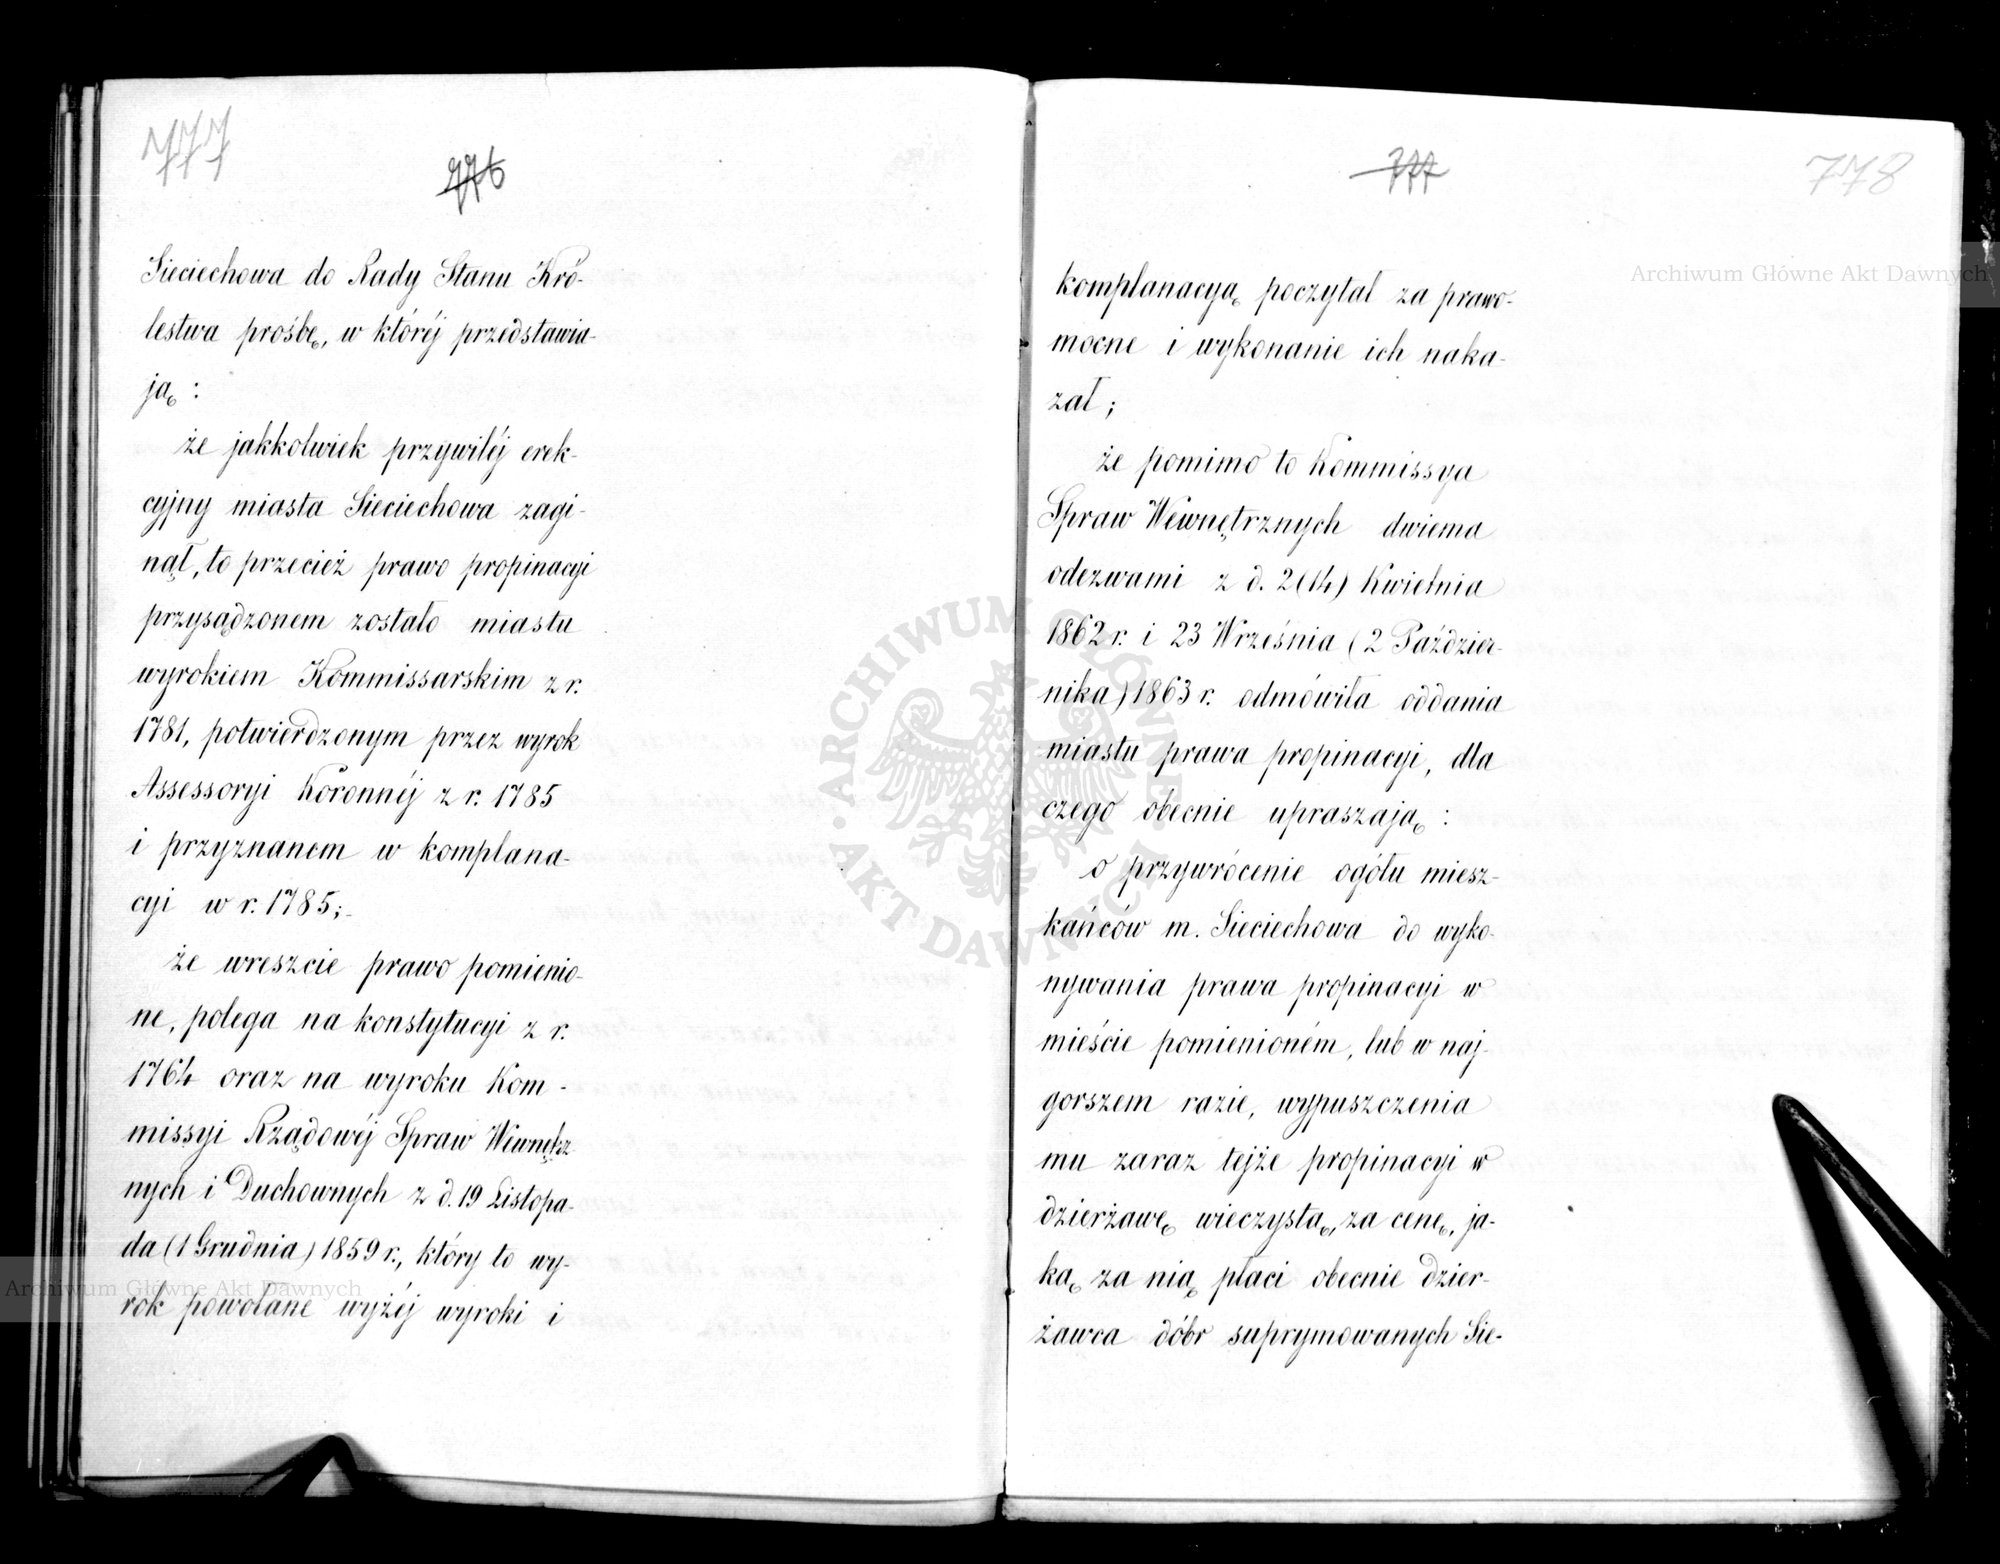 777
776
Sieciechowa do Rady Stanu Kró-
lestwa prośbę, w któréj przedstawia-
ją:
że jakkolwiek przywiléj erek-
cyjny miasta Sieciechowa zagi-
nął, to przecież prawo propinacyi
przysądzonem zostało miastu
wyrokiem Kommissarskim z r.
1781, potwierdzonym przez wyrok
Assessoryi Koronnéj z r. 1785
i przyznanem w komplana-
cyi w r. 1785;
że wreszcie prawo pomienio-
ne, polega na konstytucyi z r.
1764 oraz na wyroku Kom-
missyi Rządowéj Spraw Wewnętrz
nych i Duchownych z d. 19 Listopa-
da (1 Grudnia) 1859 r., który to wy-
rok powołane wyżéj wyroki i
777
778
komplanacyą poczytał za prawo-
mocne i wykonanie ich naka-
zał;
że pomimo to Kommissya
Spraw Wewnętrznych dwiema
odezwami z d. 2 (14) Kwietnia
1862 r. i 23 Września (2 Paździer-
nika) 1863 r. odmówiła oddania
miastu prawa propinacyi, dla
czego obecnie upraszają:
o przywrócenie ogółu miesz-
kańców m. Sieciechowa do wyko-
nywania prawa propinacyi w
mieście pomienioném, lub w naj-
gorszem razie, wypuszczenia
mu zaraz tejże propinacyi w
dzierżawę wieczystą, za cenę, ja-
ką za nią płaci obecnie dzier-
żawca dóbr suprymowanych Sie-
Archiwum Główne Akt Dawnych
Archiwum Główne Akt Dawnych
ARCHIWUM GŁÓWNE · AKT DAWNYCH ·